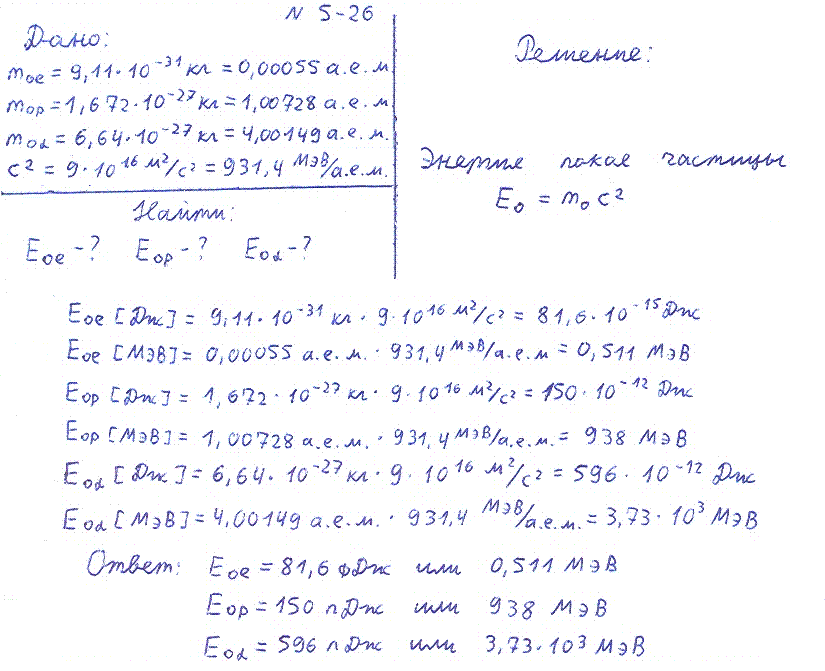 N 5-26
Дано:
m₀e = 9,11·10⁻³¹ кг = 0,00055 а.е.м
m₀p = 1,672·10⁻²⁷ кг = 1,00728 а.е.м
m₀α = 6,64·10⁻²⁷ кг = 4,00149 а.е.м.
c² = 9·10¹⁶ м²/с² = 931,4 МэВ/а.е.м.
Найти:
E₀e - ? E₀p - ? E₀α - ?
Решение:
Энергие покое частицы
E₀ = m₀c²
E₀e [Дж] = 9,11·10⁻³¹ кг · 9·10¹⁶ м²/с² = 81,6·10⁻¹⁵ Дж
E₀e [МэВ] = 0,00055 а.е.м. · 931,4 МэВ/а.е.м = 0,511 МэВ
E₀p [Дж] = 1,672·10⁻²⁷ кг · 9·10¹⁶ м²/с² = 150·10⁻¹² Дж
E₀p [МэВ] = 1,00728 а.е.м. · 931,4 МэВ/а.е.м. = 938 МэВ
E₀α [Дж] = 6,64·10⁻²⁷ кг · 9·10¹⁶ м²/с² = 596·10⁻¹² Дж
E₀α [МэВ] = 4,00149 а.е.м. · 931,4 МэВ/а.е.м. = 3,73·10³ МэВ
Ответ: E₀e = 81,6 фДж или 0,511 МэВ
E₀p = 150 пДж или 938 МэВ
E₀α = 596 пДж или 3,73·10³ МэВ